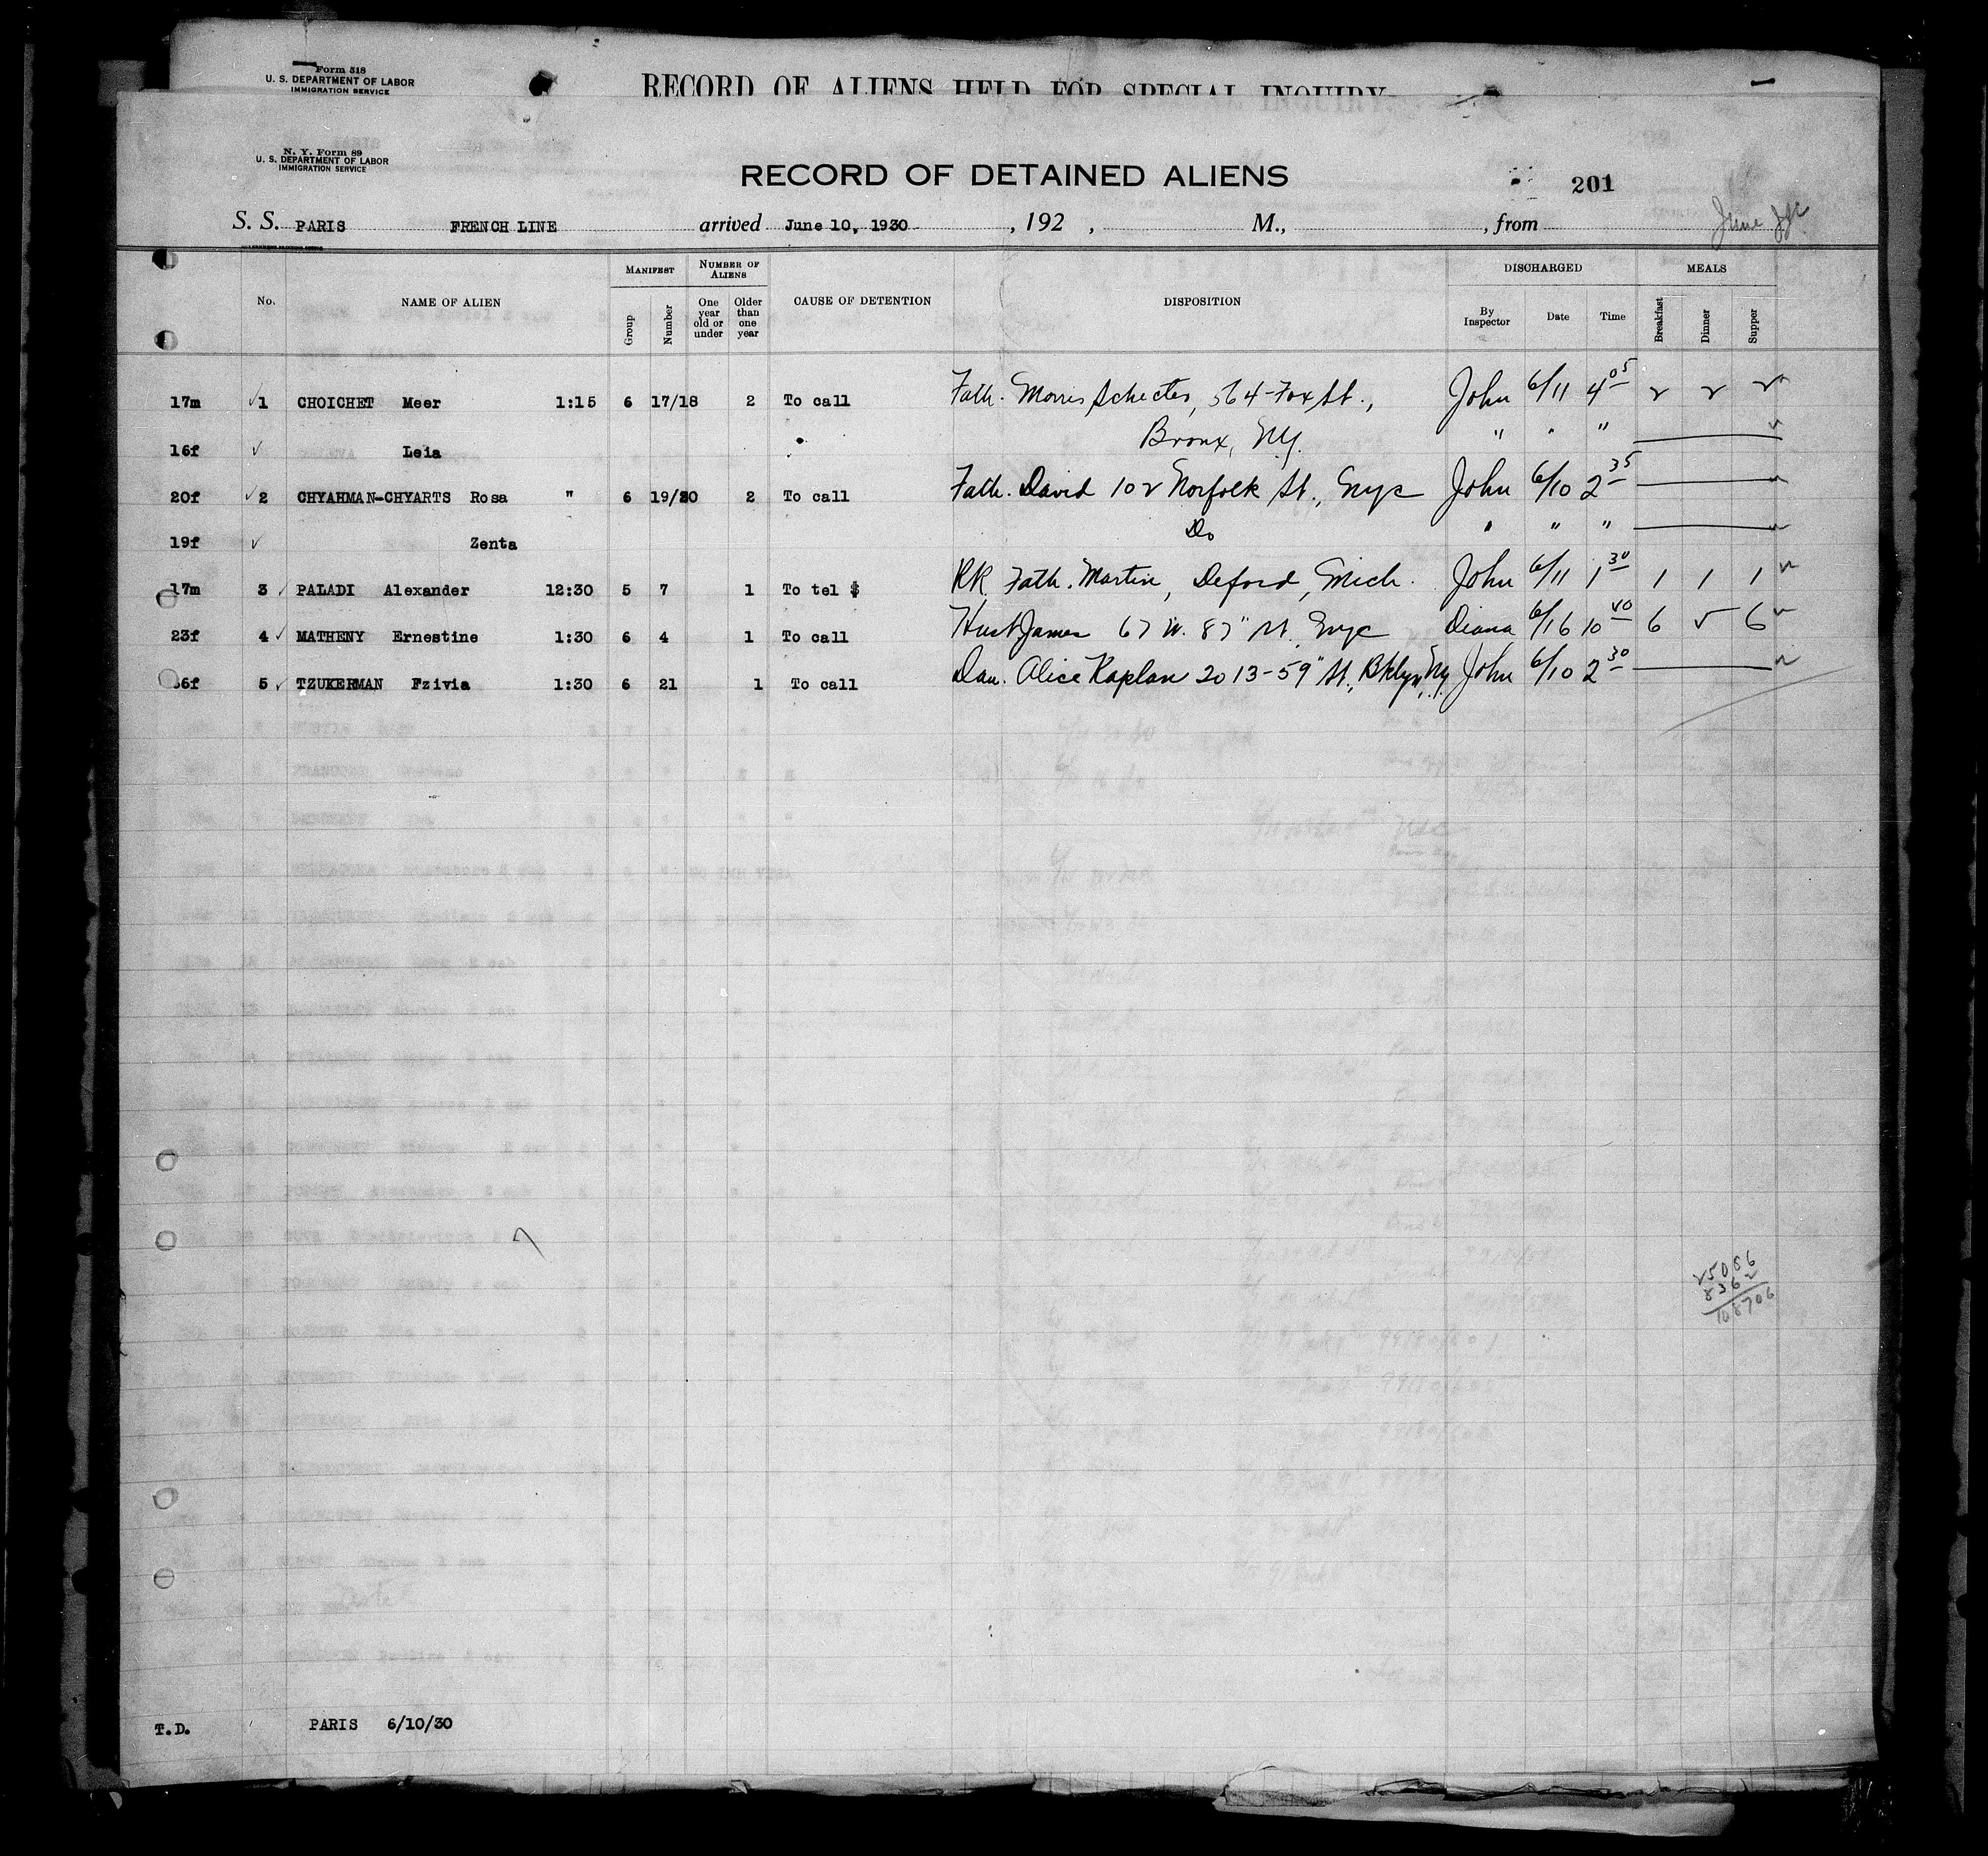 Form 518
U. S. DEPARTMENT OF LABOR
IMMIGRATION SERVICE
RECORD OF ALIENS HELD FOR SPECIAL INQUIRY
N. Y. Form 89
U. S. DEPARTMENT OF LABOR
IMMIGRATION SERVICE
RECORD OF DETAINED ALIENS
201
S. S. PARIS FRENCH LINE arrived June 10, 1930 , 192 , M., , from June
No. NAME OF ALIEN MANIFEST Group Number NUMBER OF ALIENS One year old or under Older than one year CAUSE OF DETENTION DISPOSITION DISCHARGED By Inspector Date Time MEALS Breakfast Dinner Supper
17m 1 CHOICHET Meer 1:15 6 17/18 2 To call Fath. Morris Schecter, 564 Fox St., John 6/11 4 05 2 2 2
16f Leia Bronx, NY. " " "
20f 2 CHYAHMAN-CHYARTS Rosa " 6 19/20 2 To call Fath. David 102 Norfolk St., Nyc John 6/10 2 35
19f Zenta Do " " "
17m 3 PALADI Alexander 12:30 5 7 1 To tel $ RR Fath. Martin, Deford, Mich. John 6/11 1 30 1 1 1
23f 4 MATHENY Ernestine 1:30 6 4 1 To call Husb James 67 W. 87" St. Nyc Diana 6/16 10 40 6 5 6
56f 5 TZUKERMAN Fzivia 1:30 6 21 1 To call Dau. Alice Kaplan 2013-59" St., Bklyn, Ny John 6/10 2 30
25086
8362
108706
T.D. PARIS 6/10/30